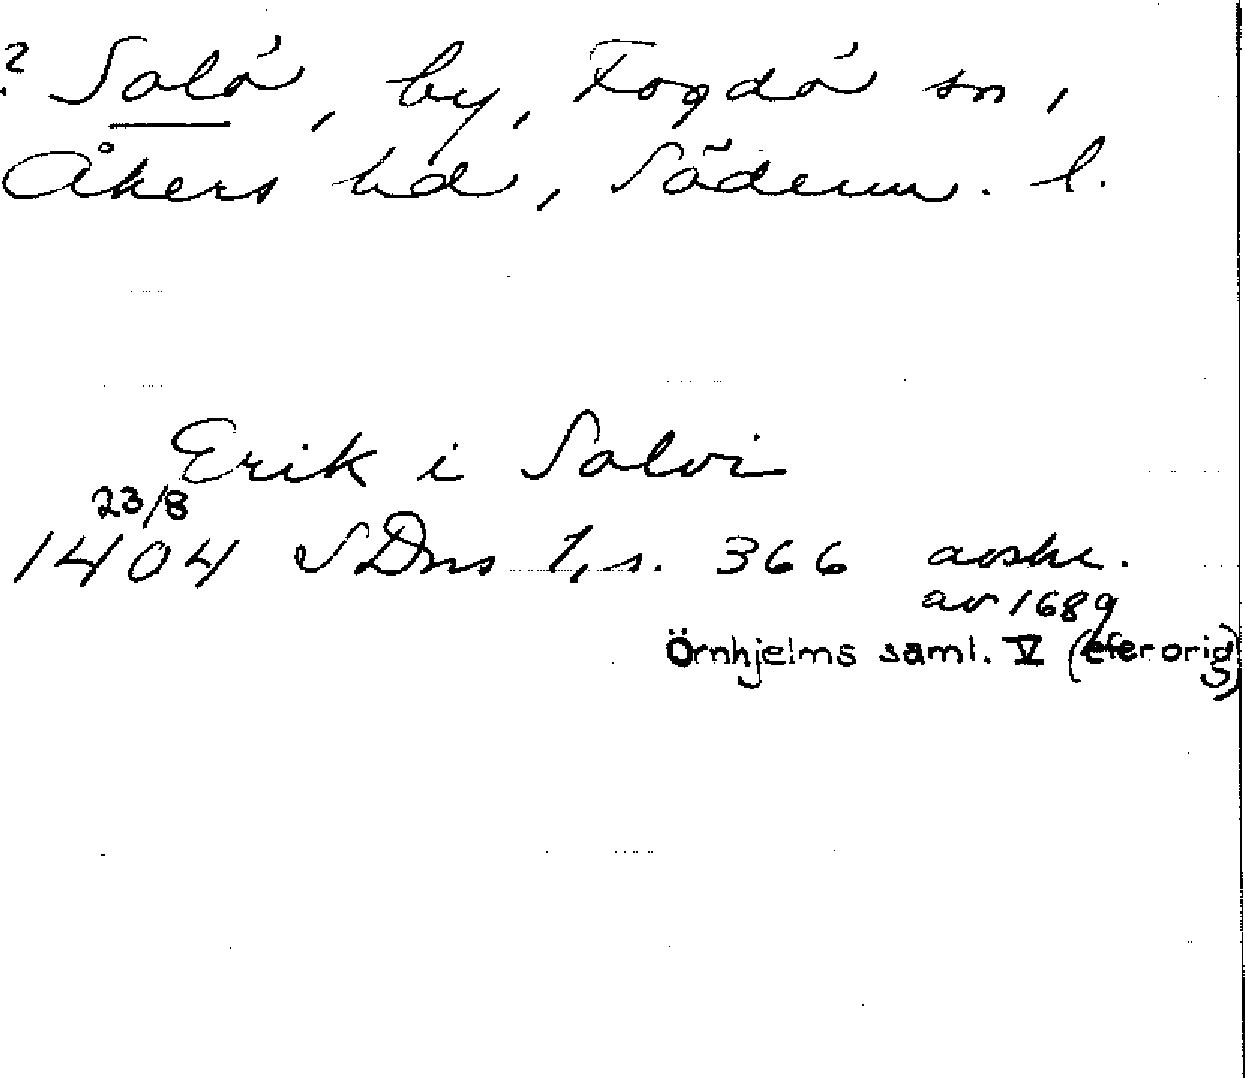 ? Salö, by, Fogdö sn,
Åkers hd, Söderm. l.
Erik i Salvi
23/8
1404 SDns 1, s. 366 avskr.
av 1689
Örnhjelms saml. V (efter orig)